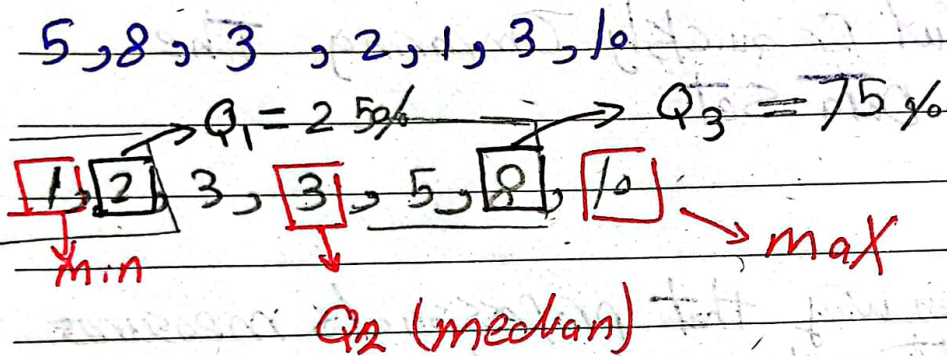 5, 8, 3, 2, 1, 3, 10
Q1 = 25% Q3 = 75%
1, 2, 3, 3, 5, 8, 10
min max
Q2 (median)